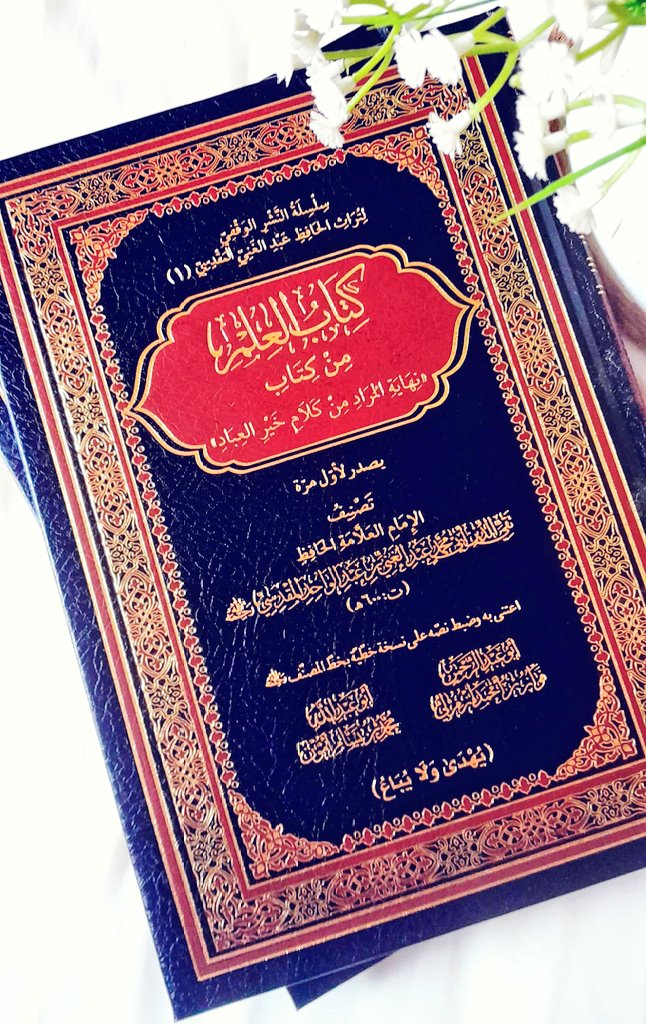 سِلْسِلَةُ النَّشْرِ الوَقْفِيِّ
لِتُرَاثِ الحَافِظِ عَبْدِ الغَنِيِّ المَقْدِسِيِّ (١)
كِتَابُ العِلْمِ
مِنْ كِتَابِ
«نِهَايَةِ المُرَادِ مِنْ كَلَامِ خَيْرِ العِبَادِ»
يصدر لأوّل مرّة
تَصْنِيفُ
الإِمَامِ العَلَّامَةِ الحَافِظِ
تقي الدين أبي محمد عبد الغني بن عبد الواحد المقدسي
(ت: ٦٠٠هـ)
اعتنى به وضبط نصّه على نسخة خطّيّة بخطّ المصنّف
أبو عبد الرحمن
أبو عبد الله
محمد بن
(يُهْدَىٰ وَلَا يُبَاعُ)